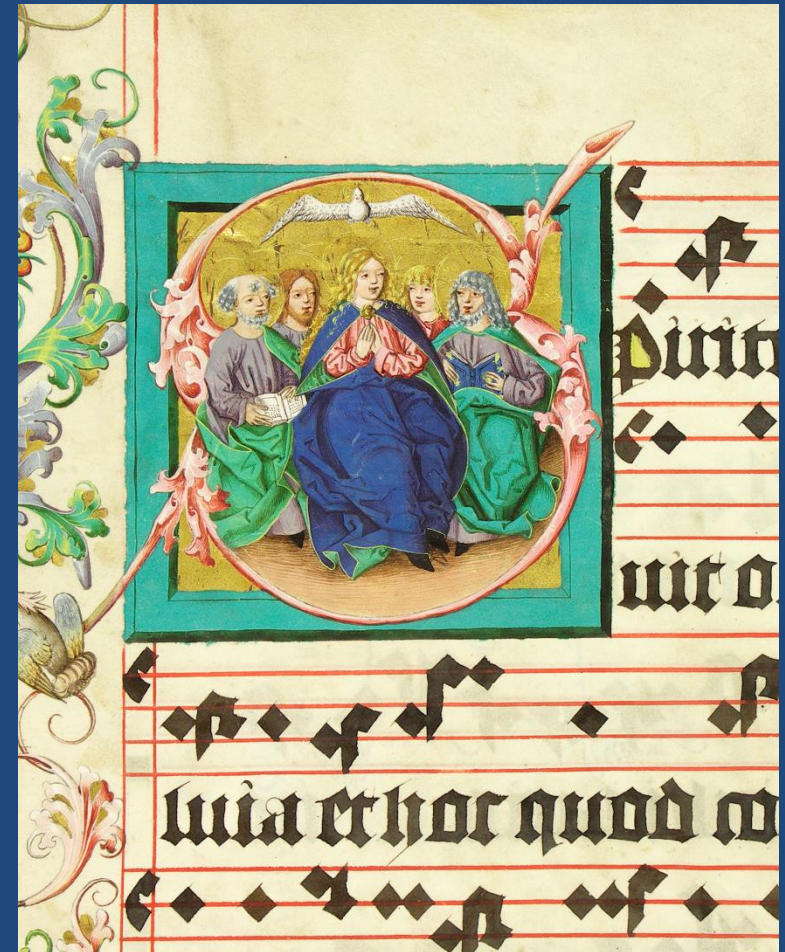 Spirit
uit o
luia et hoc quod co